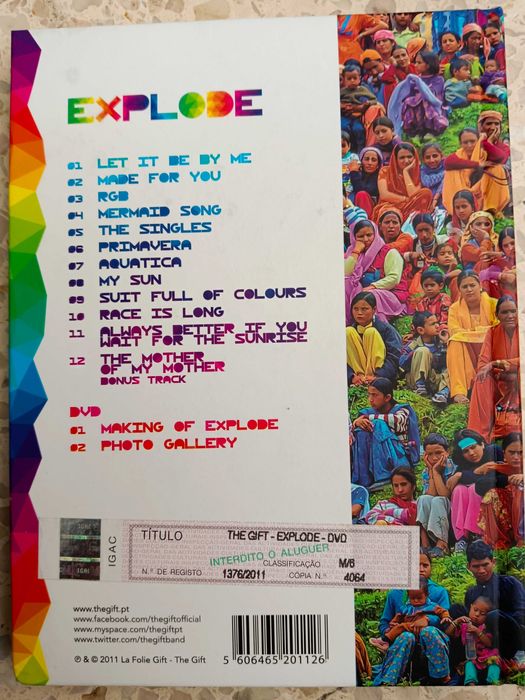 EXPLODE
01 LET IT BE BY ME
02 MADE FOR YOU
03 RGB
04 MERMAID SONG
05 THE SINGLES
06 PRIMAVERA
07 AQUATICA
08 MY SUN
09 SUIT FULL OF COLOURS
10 RACE IS LONG
11 ALWAYS BETTER IF YOU
WAIT FOR THE SUNRISE
12 THE MOTHER
OF MY MOTHER
BONUS TRACK
DVD
01 MAKING OF EXPLODE
02 PHOTO GALLERY
IGAC
TÍTULO THE GIFT - EXPLODE - DVD
INTERDITO O ALUGUER
CLASSIFICAÇÃO M/6
N.º DE REGISTO 1376/2011 CÓPIA N.º 4064
www.thegift.pt
www.facebook.com/thegiftofficial
www.myspace.com/thegiftpt
www.twitter.com/thegiftband
℗ & © 2011 La Folie Gift - The Gift
5 606465 201126